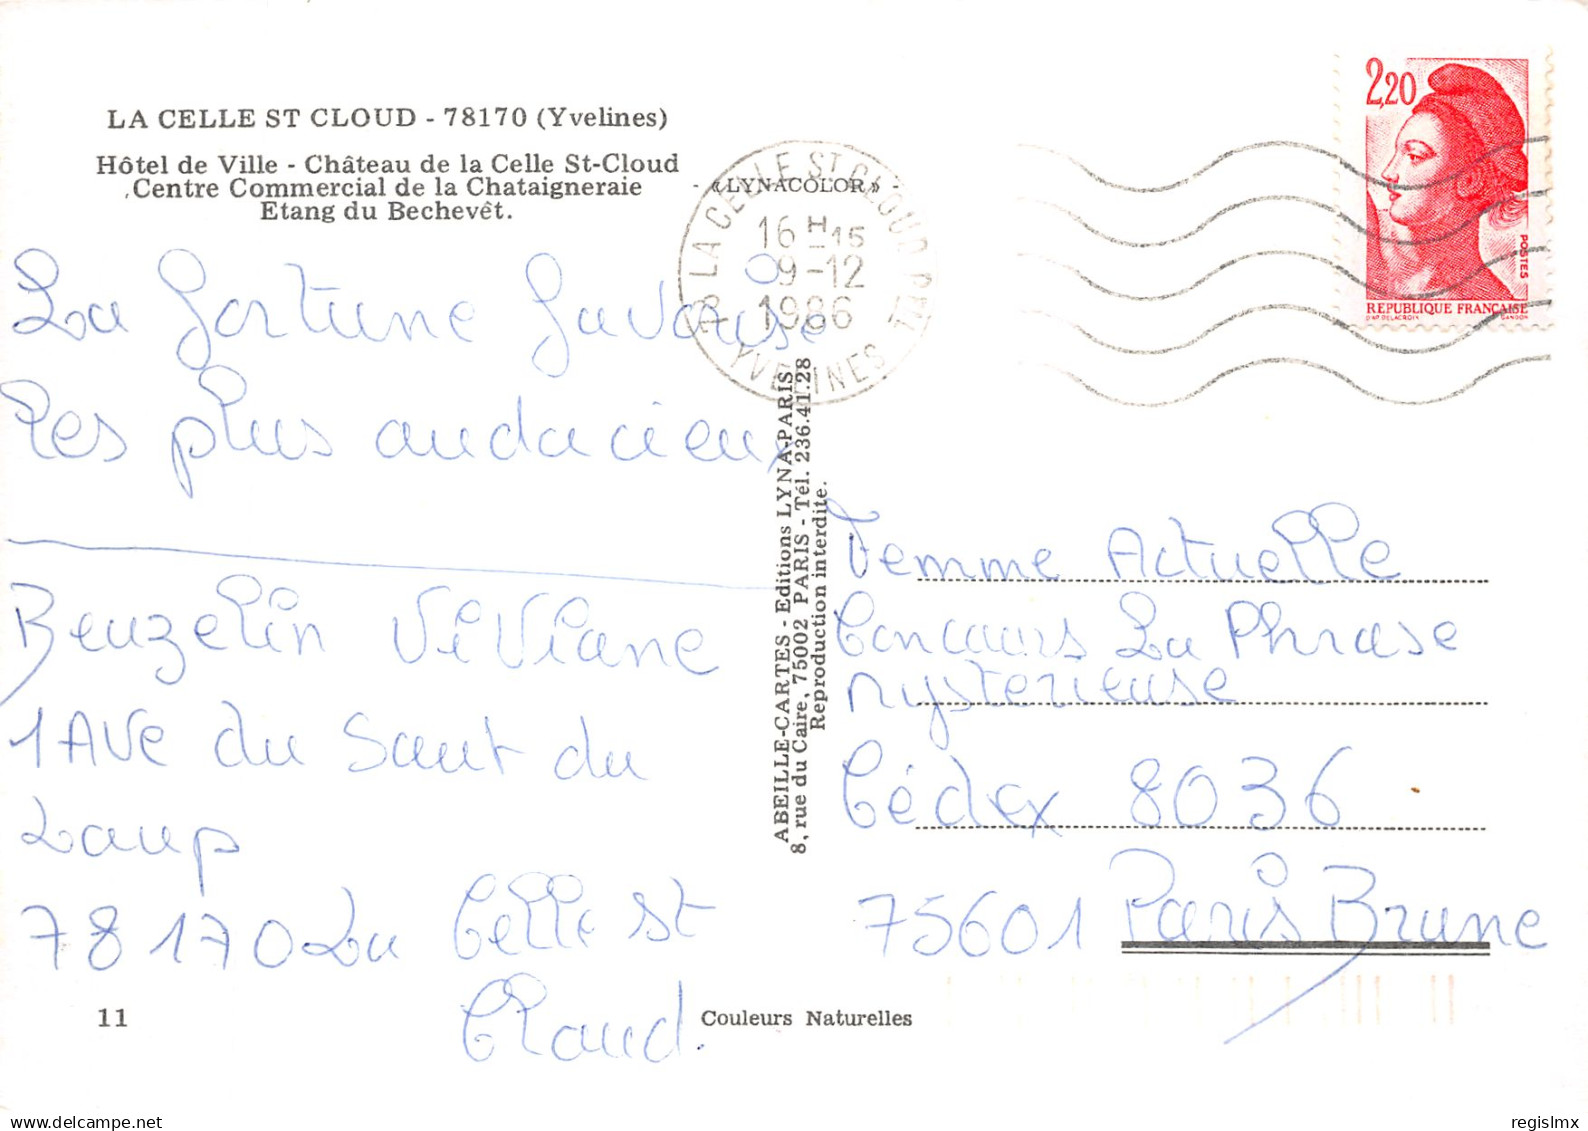 LA CELLE ST CLOUD - 78170 (Yvelines)
Hôtel de Ville - Château de la Celle St-Cloud
Centre Commercial de la Chataigneraie
Etang du Bechevêt.
- «LYNACOLOR» -
LA CELLE ST CLOUD PPAL
16 H 15
09-12
1986
78 YVELINES
2,20
POSTES
REPUBLIQUE FRANÇAISE
D'AP. DELACROIX GANDON
La fortune favorise
les plus audacieux
Beuzelin Viviane
1 AVe du Saut du
Loup
78170 La Celle St
Cloud.
ABEILLE-CARTES - Editions LYNA-PARIS
8, rue du Caire, 75002 PARIS - Tél. 236.41.28
Reproduction interdite.
Femme Actuelle
Concours La Phrase
mysterieuse
Cédex 8036
75601 Paris Brune
11
Couleurs Naturelles
delcampe.net
regislmx